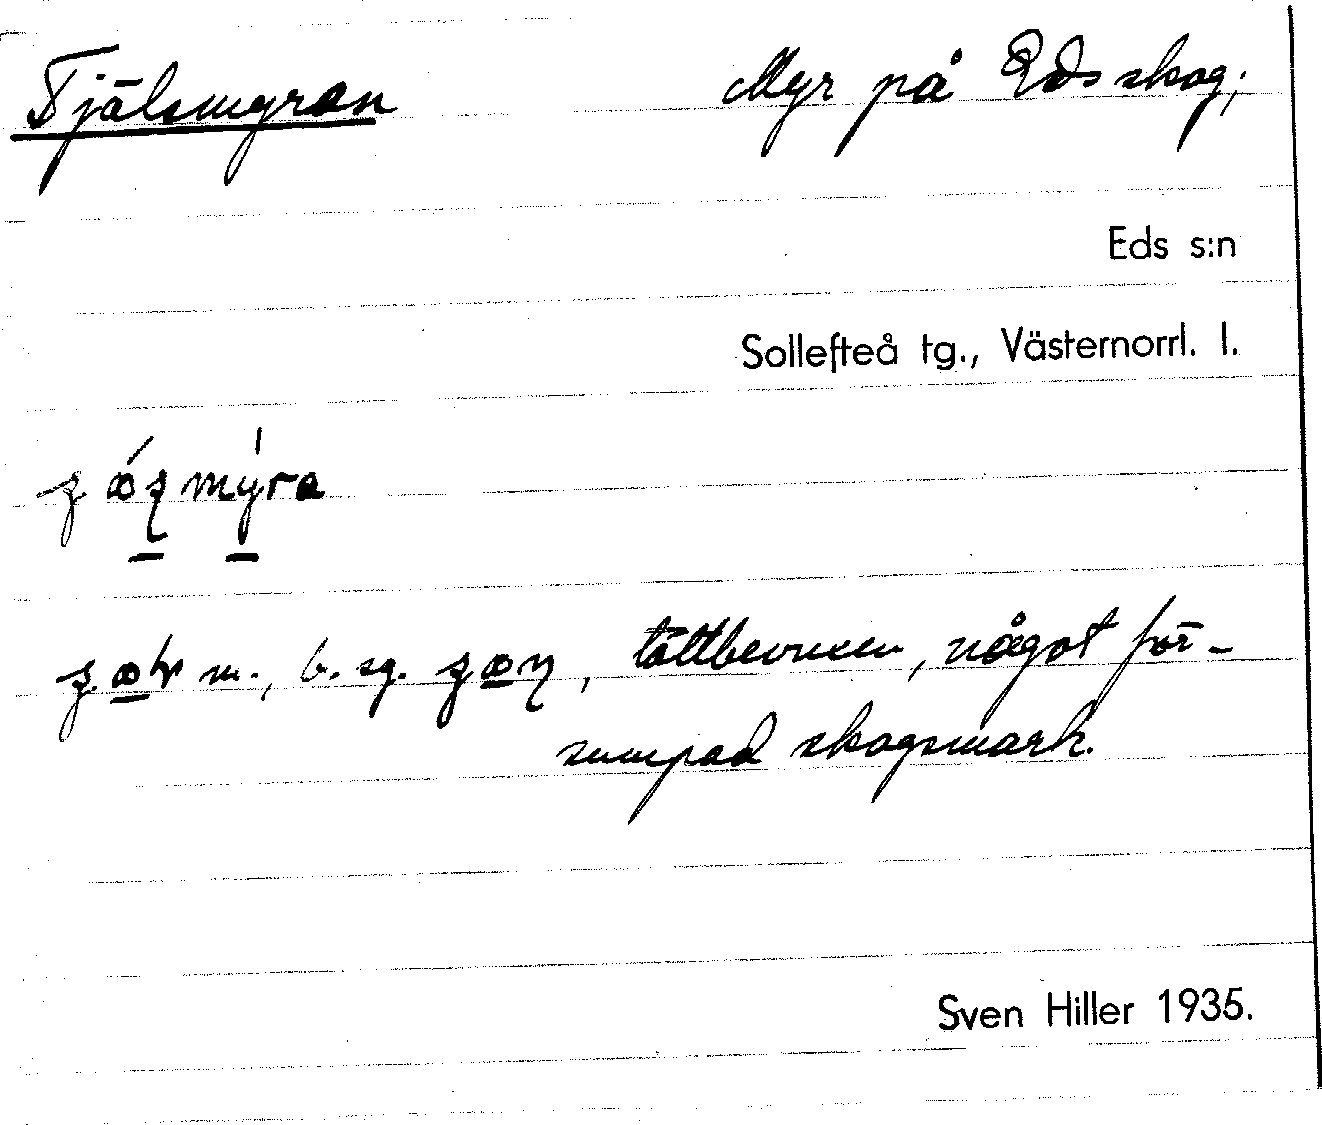 Tjälsmyran
Myr på Eds skog;
Eds s:n
Sollefteå tg., Västernorrl. l.
m., b. sg. , tättbevuxen, något för-
sumpad skogsmark.
Sven Hiller 1935.